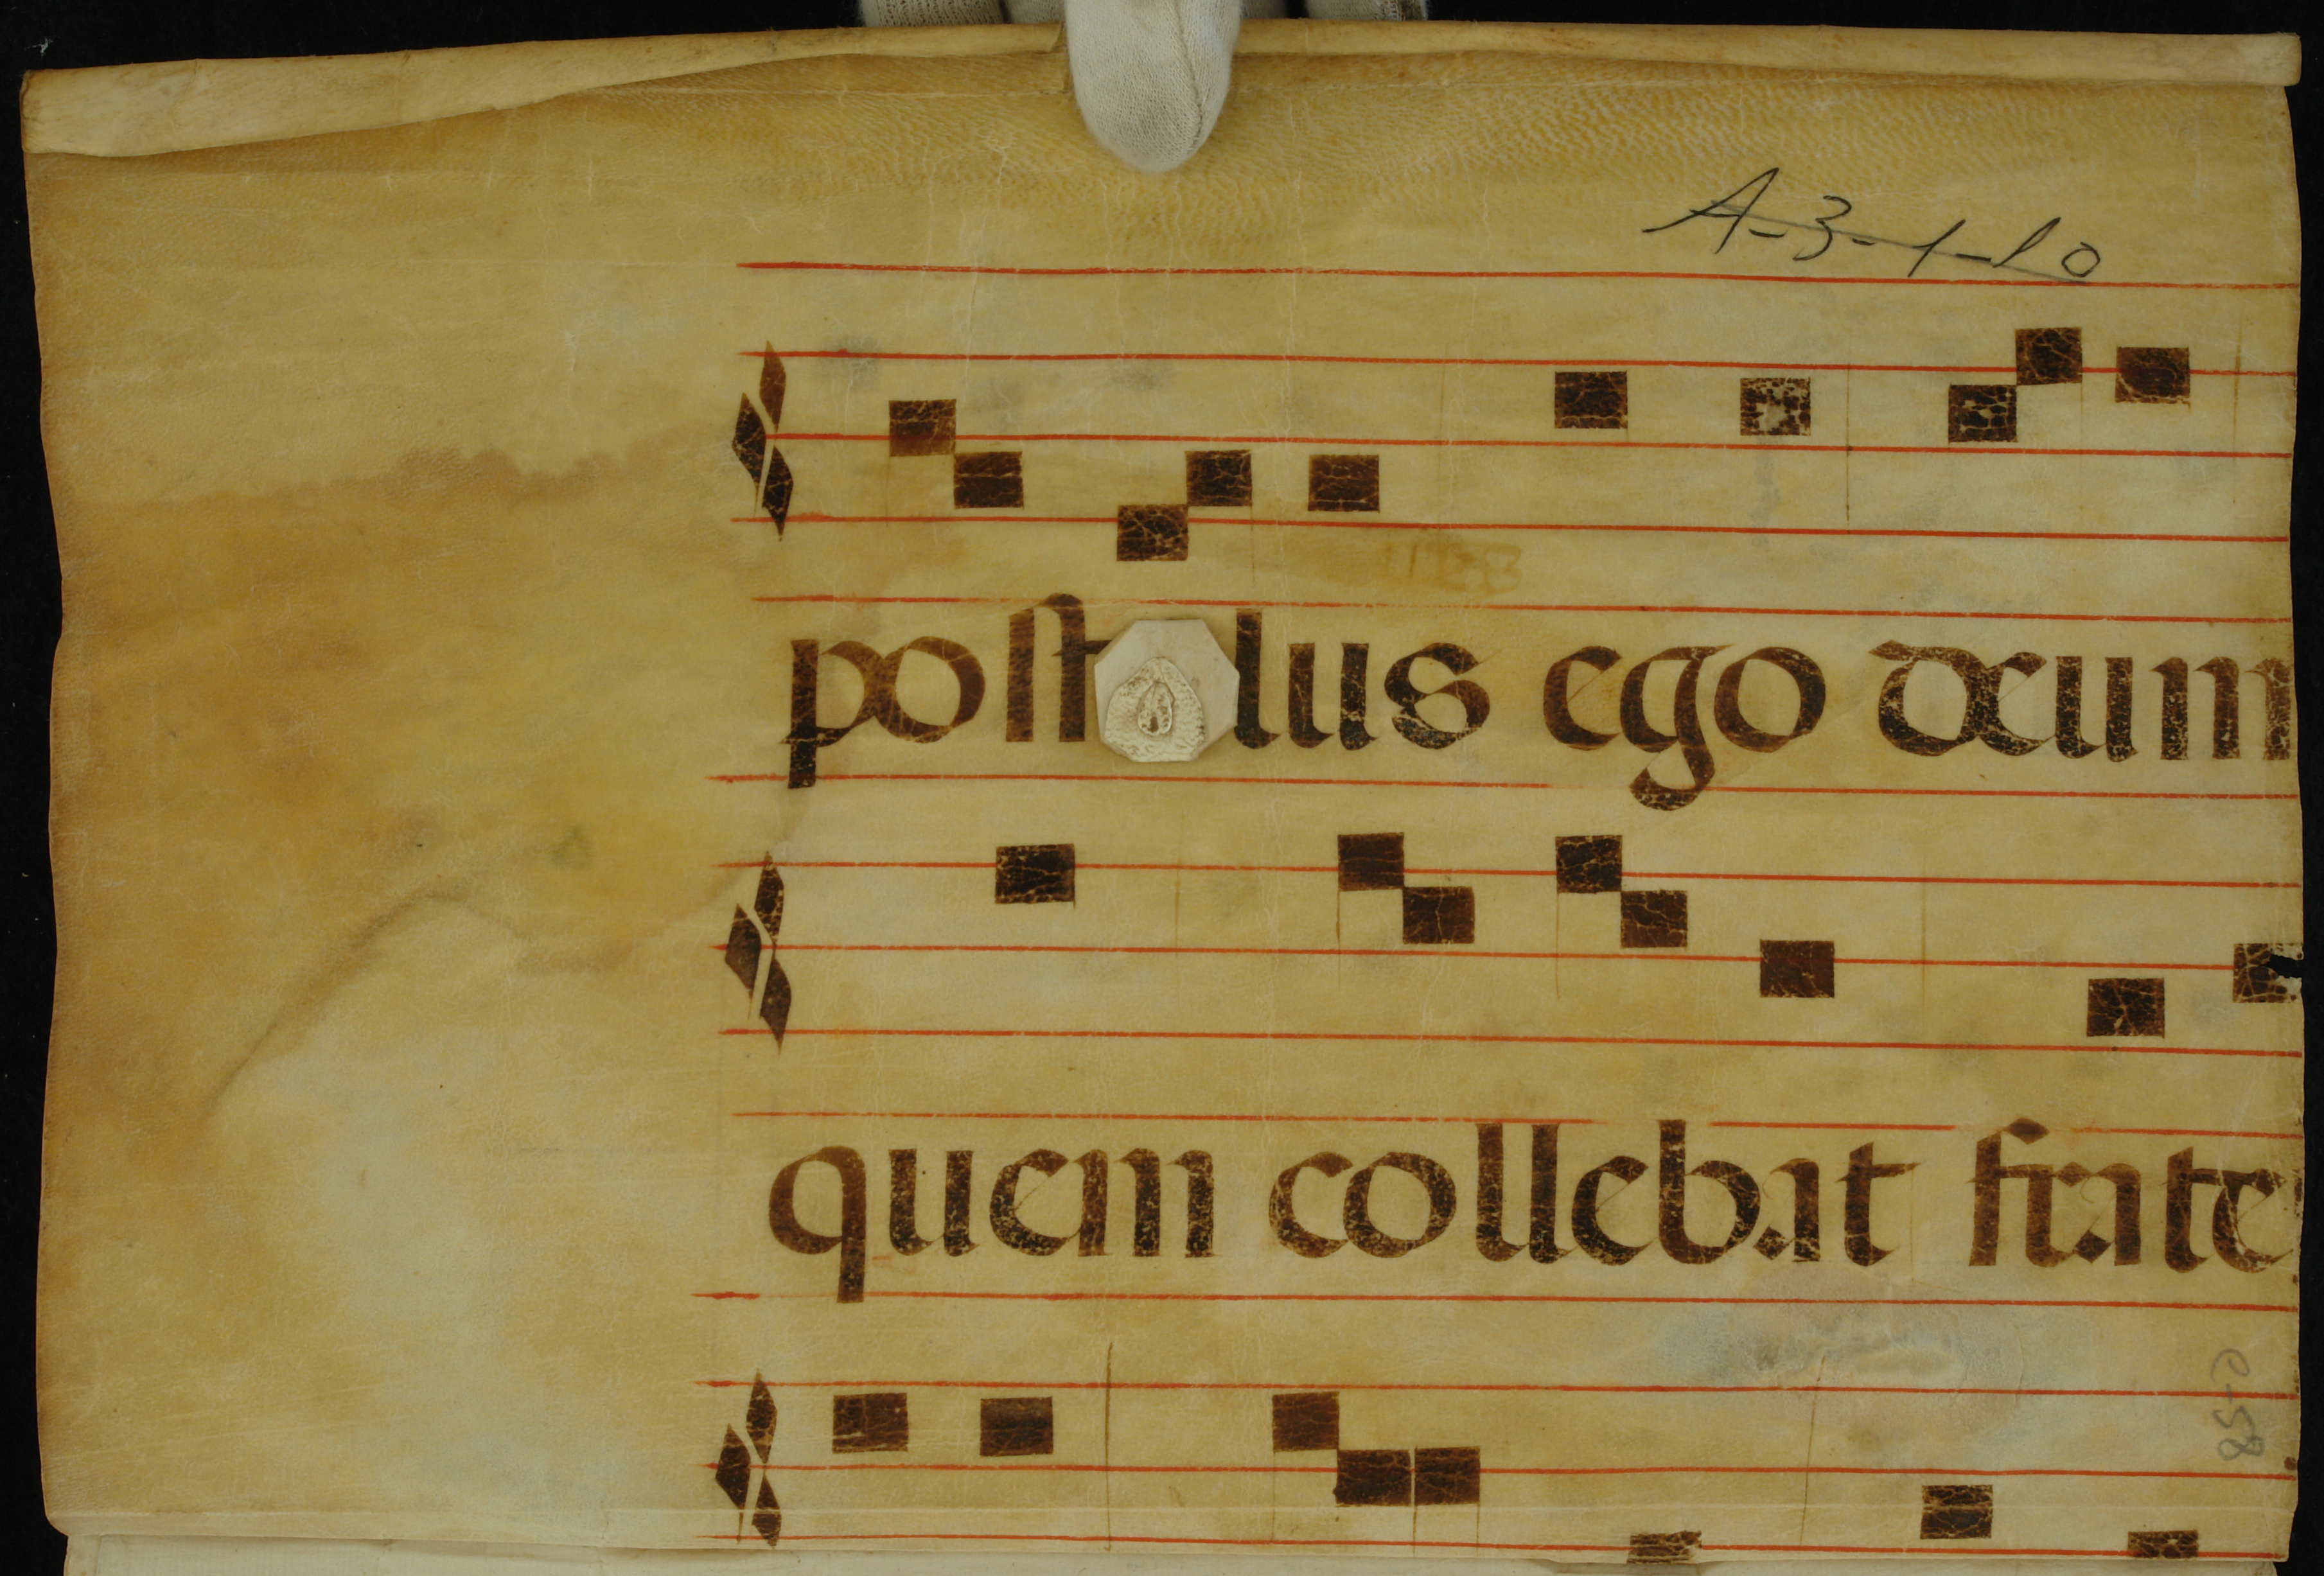 A-3-1-10
post lus ego deum
quem collebat frate
C-58